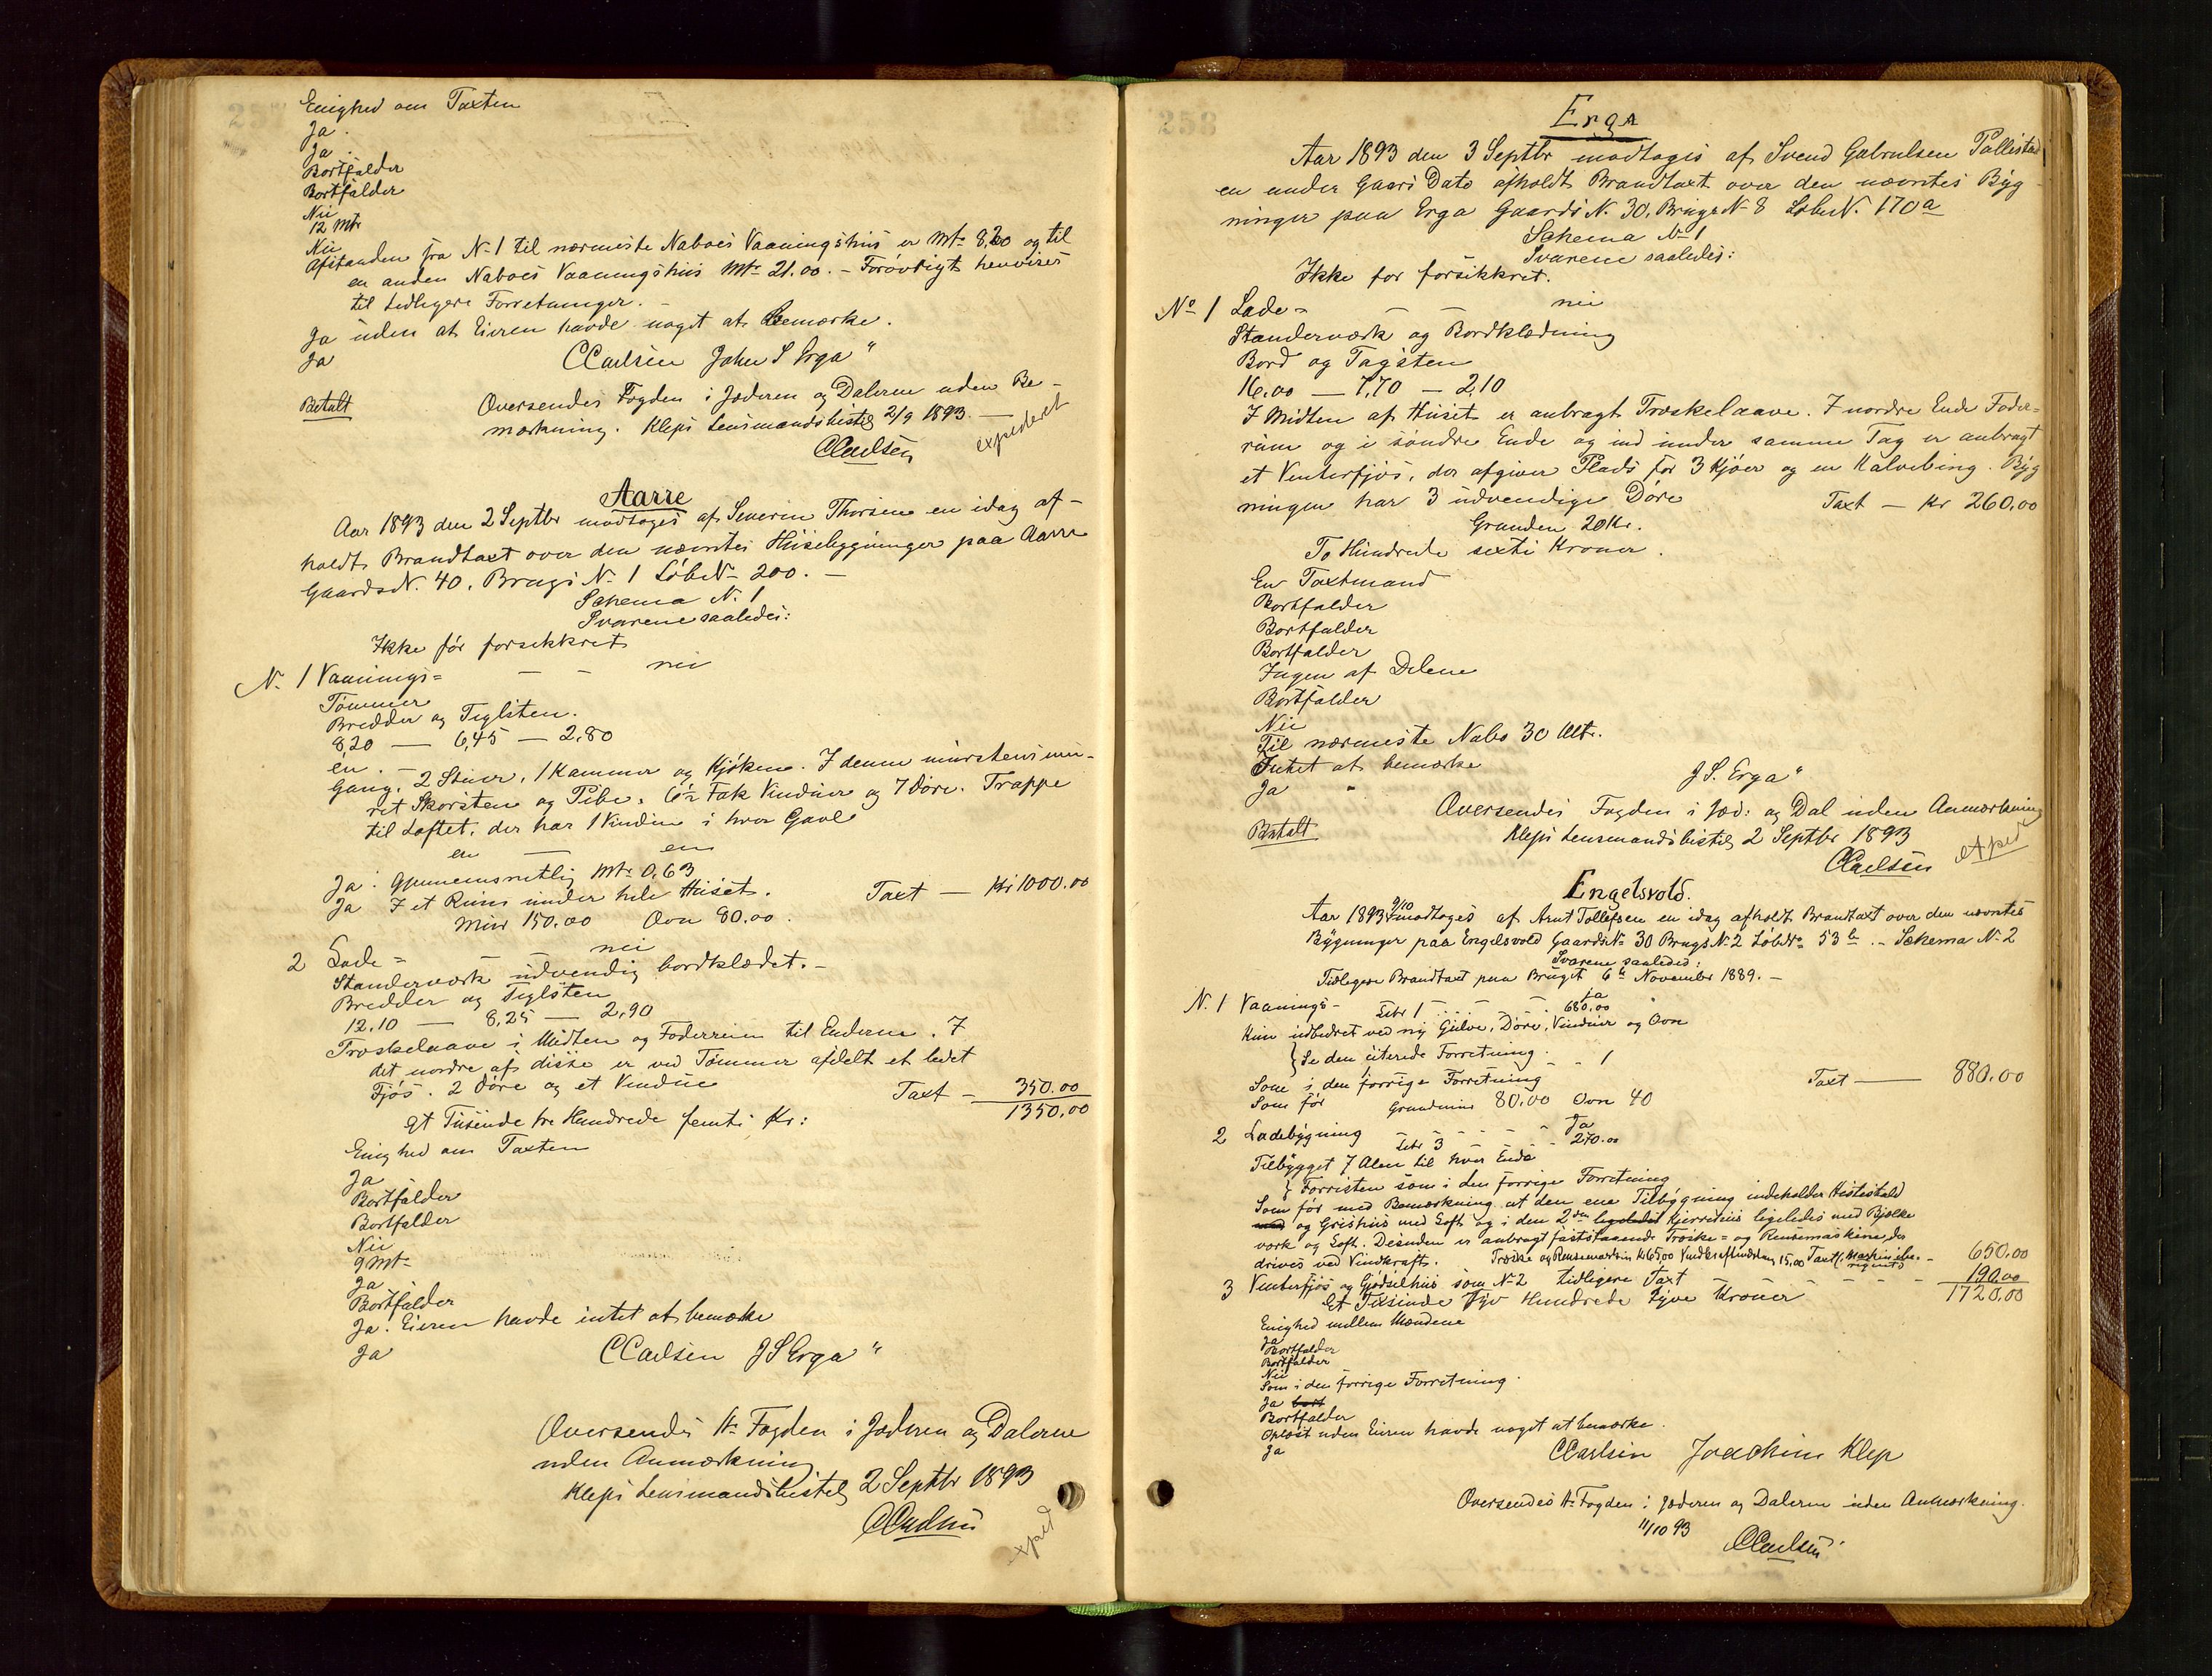 Enighed om Taxten
Ja.
Ja.
Bortfalder
Bortfalder
Nei
12 Mtr
Nei
Afstanden fra N. 1 til nærmeste Naboes Vaaningshus er Mtr 8,20 og til
en anden Naboes Vaaningshus Mtr 21.00. - Forøvrigt henvises
til tidligere Forretninger. -
Ja uden at Eieren havde noget at bemærke.
Ja
CCarlsen John S Erga "
Betalt
Oversendes Fogden i Jæderen og Dalerne uden Be-
mærkning. Kleps Lensmandsbestil 2/9 1893. -
CCarlsen
expederet
Aarre
Aar 1893 den 2 Septbr modtoges af Severin Thorsen en idag af-
holdt Brandtaxt over den nævntes Husebygninger paa Aarre
Gaards N. 40, Brugs N. 1 LøbN. 200. -
Schema N. 1
Svarene saaledes:
Ikke før forsikkret
N. 1 Vaanings= - - nei
Tømmer
Bredder og Teglsten.
8,20 - 6,45 - 2,80
en. -
Gang, 2 Stuer, 1 Kammer og Kjøken. I denne murstens mu-
ret Skorsten og Pibe, 6½ Fak Vinduer og 7 Døre. Trappe
til Loftet, der har 1 Vindue i hver Gavl
en - en
Ja. Gjennemsnitlig Mtr 0,63
Ja I et Rum under hele Huset. Taxt - Kr 1000.00
Mur 150.00 Ovn 80.00.
2 Lade= - - nei
Standerværk udvendig bordklædet. -
Bredder og Teglsten
12.10 - 8,25 - 2,90
Træskelaave i Midten og Foderrum til Enderne. I
det nordre af disse er ved Tømmer afdelt et lidet
Fjøs. 2 Døre og et Vindue Taxt - 350.00
1350,00
Et Tusende tre Hundrede femti Kr:
Enighed om Taxten
Ja
Bortfalder
Bortfalder
Nei
9 Mtr
Ja
Bortfalder
Ja. Eieren havde intet at bemærke
Ja
CCarlsen J S Erga "
Oversendes Hr Fogden i Jæderen og Dalerne
uden Anmærkning
Kleps Lensmandsbestil 2 Septbr 1893
CCarlsen
exped
258
Erga
Aar 1893 den 3 Septbr modtoges af Svend Gabrielsen Pollestad
en under Gaars Dato afholdt Brandtaxt over den nævntes Byg
ninger paa Erga Gaards N. 30, Brugs N. 8 LøbeN. 170a
Schema N. 1
Svarene saaledes:
Ikke før forsikkret.
No 1 Lade= - - nei
Standerværk og Bordklædning
Bord og Tagsten
16.00 - 7,70 - 2,10
I Midten af Huset er anbragt Træskelaave. I nordre Ende Foder=
rum og i søndre Ende og ind under samme Tag er anbragt
et Vinterfjøs, der afgiver Plads for 3 Kjøer og en Kalvebing. Byg
ningen har 3 udvendige Døre Taxt - Kr 260.00
Grunden 20 Kr.
To Hundrede sexti Kroner.
En Taxtmand
Bortfalder
Bortfalder
Bortfalder
Ingen af Delene
Bortfalder
Nei
Til nærmeste Nabo 30 Mtr.
Intet at bemærke
Ja "
J S. Erga "
Betalt
Oversendes Fogden i Jæd: og Dal uden Anmærkning
Kleps Lensmandsbestil 2 Septbr 1893
CCarlsen
exped
Engelsvold.
Aar 1893 9/10 modtoges af Arnt Tollefsen en idag afholdt Brandtaxt over den nævntes
Bygninger paa Engelsvold Gaards N. 30 Brugs N. 2 LøbN. 53 b. - Schema N. 2
Svarene saaledes:
Tidligere Brandtaxt paa Bruget 6te November 1889. -
ja
N. 1 Vaanings- Litr 1 . . . . 680.00
Kun udbedret ved ny Gulve, Døre, Vinduer og Ovn
Se den citerede Forretning. - - 1
Som i den forrige Forretning Taxt - 880.00
Som før Grundmur 80.00 Ovn 40
2 Ladebygning - - - - - Ja
Litr 3 - - - - 270.00
Tilbygget 7 Alen til hver Ende
Forresten som i den forrige Forretning
Som før med Bemærkning at den ene Tilbygning indeholder Hestestald
og Grishus med Loft og i den 2den ligeledes Kjerrehus ligeledes med Bjelke
værk og Loft. Desuden er anbragt faststaaende Træske= og Rensemaskine der
drives ved Vindkraft. Træske og Rensemaskin Kr 65.00 Taxt 650.00
3 Vinterfjøs og Gjødselhus som N. 2 tidligere Taxt - - - - - 190.00
Et Tusinde Syv Hundrede Tyve Kroner 1720.00
Enighed mellem Mændene
Ja
Bortfalder
Bortfalder
Nei
Som i den forrige Forretning.
Ja bort
Bortfalder
Oplæst uden Eieren havde noget at bemærke.
Ja
CCarlsen Joachim Klep
Oversendes Hr Fogden i Jæderen og Dalerne uden Anmærkning.
11/10 93
CCarlsen